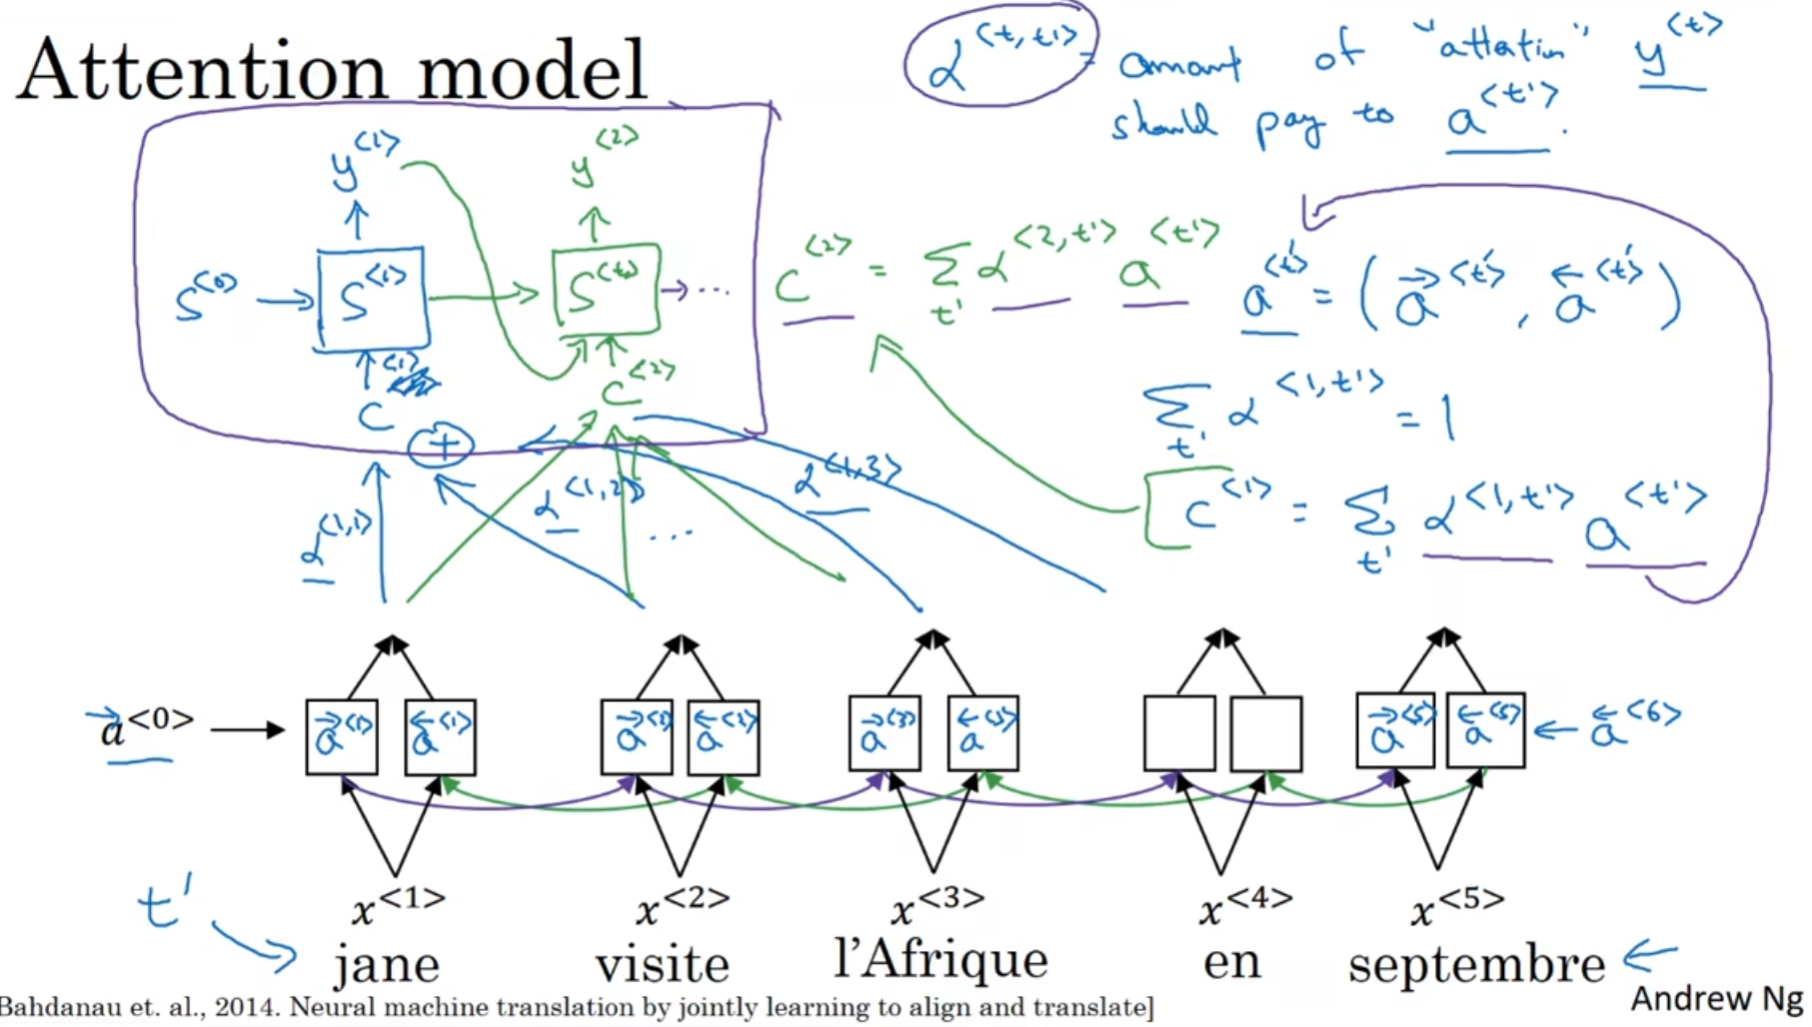 Attention model
α<t,t'> = amount of "attention" y<t>
should pay to a<t'>.
y<1>
y<2>
S<0> → S<1> → S<t> → ...
C<1>
C<2>
C<2> = Σt' α<2,t'> a<t'>
a<t'> = (→a<t'>, ←a<t'>)
Σt' α<1,t'> = 1
C<1> = Σt' α<1,t'> a<t'>
+
α<1,1>
α<1,2>
...
α<1,3>
→a<0> →a<1> ←a<1> →a<2> ←a<2> →a<3> ←a<3> →a<5> ←a<5> ← ←a<6>
t'
x<1> x<2> x<3> x<4> x<5>
jane visite l'Afrique en septembre
Bahdanau et. al., 2014. Neural machine translation by jointly learning to align and translate]
Andrew Ng